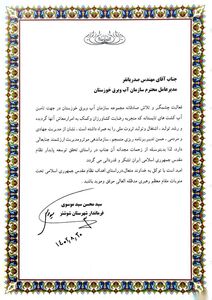 جناب آقای مهندس صدریانفر
مدیرعامل محترم سازمان آب و برق خوزستان
فعالیت چشمگیر و تلاش صادقانه مجموعه سازمان آب و برق خوزستان در جهت تامین
آب کشت های تابستانه که منجر به رضایت کشاورزان و کمک به امرار معاش آنها گردیده
و رشد تولید، اشتغال و تولید ثروت ملی را به همراه داشته است، نشان از مدیریت جهادی
سازماندهی موثر و مدیریت ارزشمند جنابعالی
دارد. لذا بدینوسیله از زحمات مجدانه آن جناب در راستای تحقق توسعه پایدار نظام
مقدس جمهوری اسلامی ایران تشکر و قدردانی می گردد.
امید است با توکل به خداوند متعال در راستای اهداف نظام مقدس جمهوری اسلامی تحت
منویات مقام معظم رهبری مدظله العالی موفق و موید باشید.
سید محسن سید موسوی
فرماندار شهرستان شوشتر